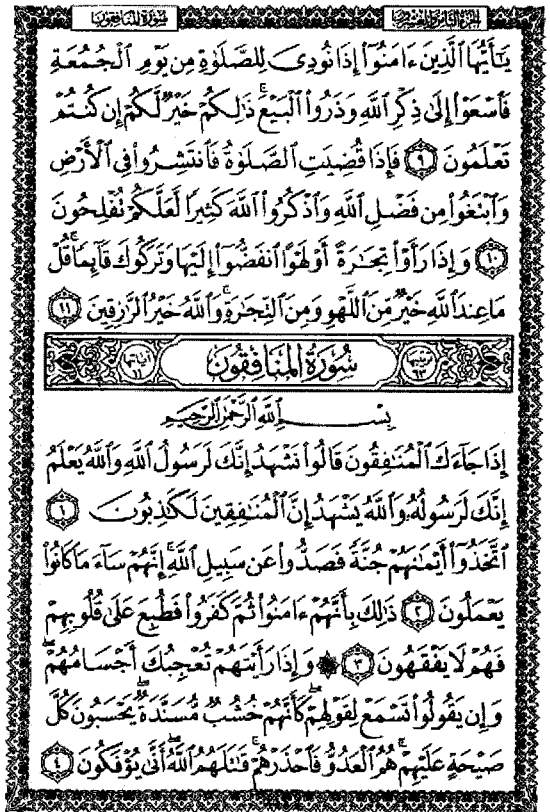 سُورَةُ المُنَافِقُون الجُزءُ الثَّامِنُ وَالعِشرُونَ
يَٰٓأَيُّهَا ٱلَّذِينَ ءَامَنُوٓا۟ إِذَا نُودِىَ لِلصَّلَوٰةِ مِن يَوْمِ ٱلْجُمُعَةِ
فَٱسْعَوْا۟ إِلَىٰ ذِكْرِ ٱللَّهِ وَذَرُوا۟ ٱلْبَيْعَ ۚ ذَٰلِكُمْ خَيْرٌ لَّكُمْ إِن كُنتُمْ
تَعْلَمُونَ ٩ فَإِذَا قُضِيَتِ ٱلصَّلَوٰةُ فَٱنتَشِرُوا۟ فِى ٱلْأَرْضِ
وَٱبْتَغُوا۟ مِن فَضْلِ ٱللَّهِ وَٱذْكُرُوا۟ ٱللَّهَ كَثِيرًا لَّعَلَّكُمْ تُفْلِحُونَ
١٠ وَإِذَا رَأَوْا۟ تِجَٰرَةً أَوْ لَهْوًا ٱنفَضُّوٓا۟ إِلَيْهَا وَتَرَكُوكَ قَآئِمًا ۚ قُلْ
مَا عِندَ ٱللَّهِ خَيْرٌ مِّنَ ٱللَّهْوِ وَمِنَ ٱلتِّجَٰرَةِ ۚ وَٱللَّهُ خَيْرُ ٱلرَّٰزِقِينَ ١١
سُورَةُ المُنَافِقُون
بِسْمِ ٱللَّهِ ٱلرَّحْمَٰنِ ٱلرَّحِيمِ
إِذَا جَآءَكَ ٱلْمُنَٰفِقُونَ قَالُوا۟ نَشْهَدُ إِنَّكَ لَرَسُولُ ٱللَّهِ وَٱللَّهُ يَعْلَمُ
إِنَّكَ لَرَسُولُهُۥ وَٱللَّهُ يَشْهَدُ إِنَّ ٱلْمُنَٰفِقِينَ لَكَٰذِبُونَ ١
ٱتَّخَذُوٓا۟ أَيْمَٰنَهُمْ جُنَّةً فَصَدُّوا۟ عَن سَبِيلِ ٱللَّهِ ۚ إِنَّهُمْ سَآءَ مَا كَانُوا۟
يَعْمَلُونَ ٢ ذَٰلِكَ بِأَنَّهُمْ ءَامَنُوا۟ ثُمَّ كَفَرُوا۟ فَطُبِعَ عَلَىٰ قُلُوبِهِمْ
فَهُمْ لَا يَفْقَهُونَ ٣ ۞ وَإِذَا رَأَيْتَهُمْ تُعْجِبُكَ أَجْسَامُهُمْ ۖ
وَإِن يَقُولُوا۟ تَسْمَعْ لِقَوْلِهِمْ ۖ كَأَنَّهُمْ خُشُبٌ مُّسَنَّدَةٌ ۖ يَحْسَبُونَ كُلَّ
صَيْحَةٍ عَلَيْهِمْ ۚ هُمُ ٱلْعَدُوُّ فَٱحْذَرْهُمْ ۚ قَٰتَلَهُمُ ٱللَّهُ ۖ أَنَّىٰ يُؤْفَكُونَ ٤